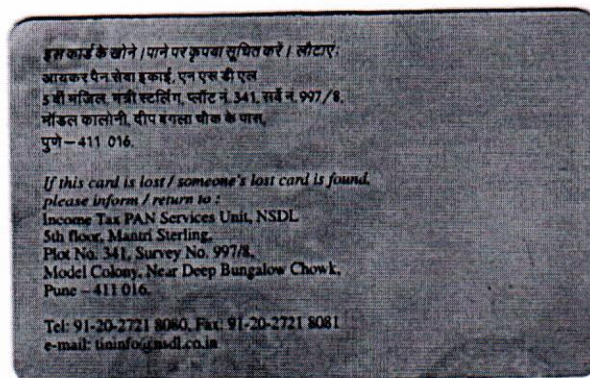 इस कार्ड के खोने / पाने पर कृपया सूचित करें / लौटाएं:
आयकर पैन सेवा इकाई, एन एस डी एल
5 वी मंजिल, मंत्री स्टर्लिंग, प्लॉट नं. 341, सर्वे नं. 997/8,
मॉडल कालोनी, दीप बंगला चौक के पास,
पुणे – 411 016.
If this card is lost / someone's lost card is found,
please inform / return to :
Income Tax PAN Services Unit, NSDL
5th floor, Mantri Sterling,
Plot No. 341, Survey No. 997/8,
Model Colony, Near Deep Bungalow Chowk,
Pune – 411 016.
Tel: 91-20-2721 8080, Fax: 91-20-2721 8081
e-mail: tininfo@nsdl.co.in